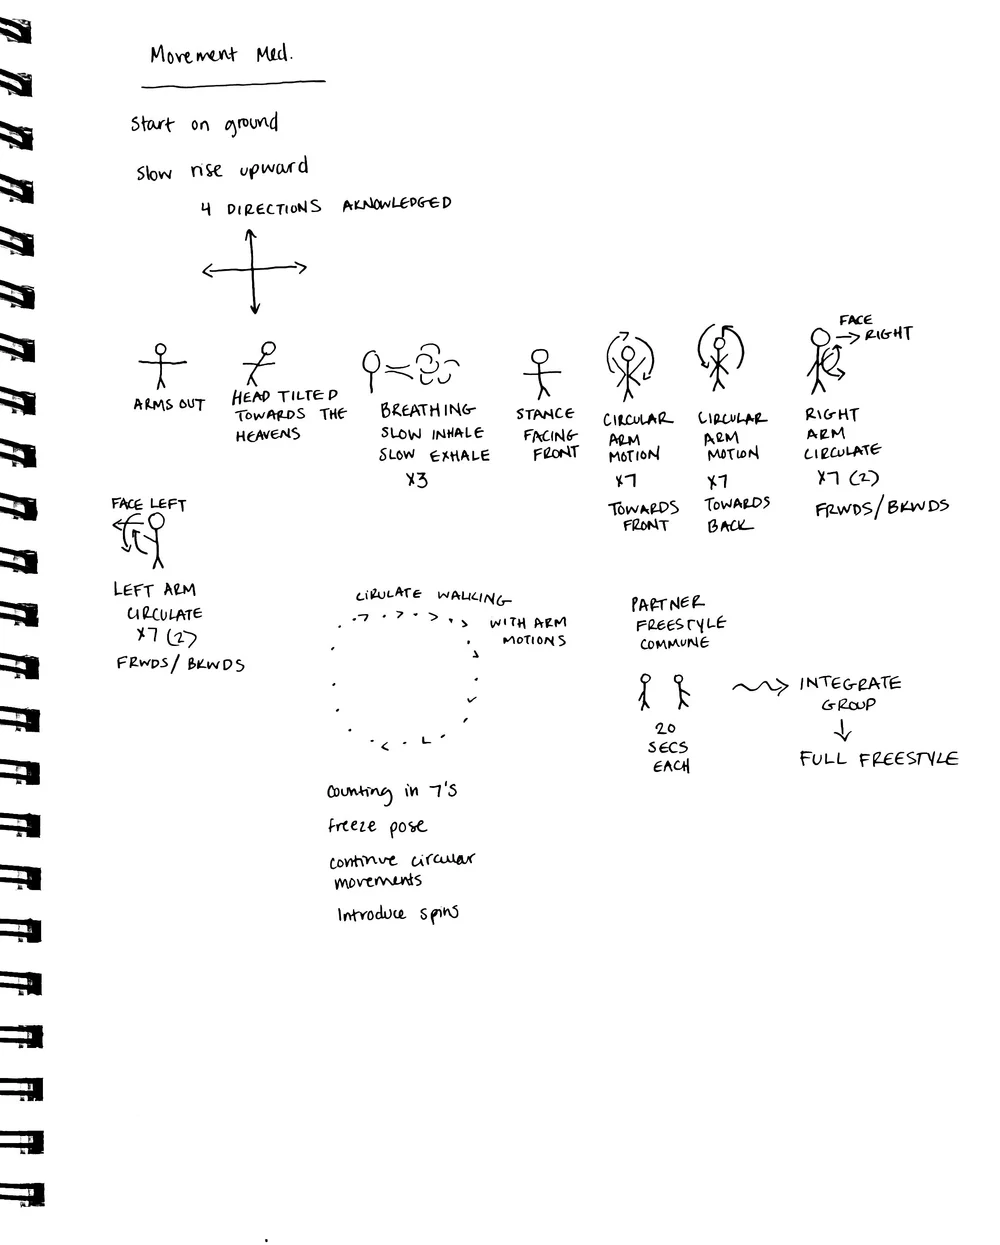 Movement Med.
Start on ground
Slow rise upward
4 DIRECTIONS AKNOWLEDGED
ARMS OUT
HEAD TILTED
TOWARDS THE
HEAVENS
BREATHING
SLOW INHALE
SLOW EXHALE
x3
STANCE
FACING
FRONT
CIRCULAR
ARM
MOTION
x7
TOWARDS
FRONT
CIRCULAR
ARM
MOTION
x7
TOWARDS
BACK
FACE
RIGHT
RIGHT
ARM
CIRCULATE
x7 (2)
FRWDS/BKWDS
FACE LEFT
LEFT ARM
CIRCULATE
x7 (2)
FRWDS/BKWDS
CIRULATE WALKING
WITH ARM
MOTIONS
Counting in 7's
freeze pose
continue circular
movements
Introduce spins
PARTNER
FREESTYLE
COMMUNE
20
SECS
EACH
INTEGRATE
GROUP
FULL FREESTYLE